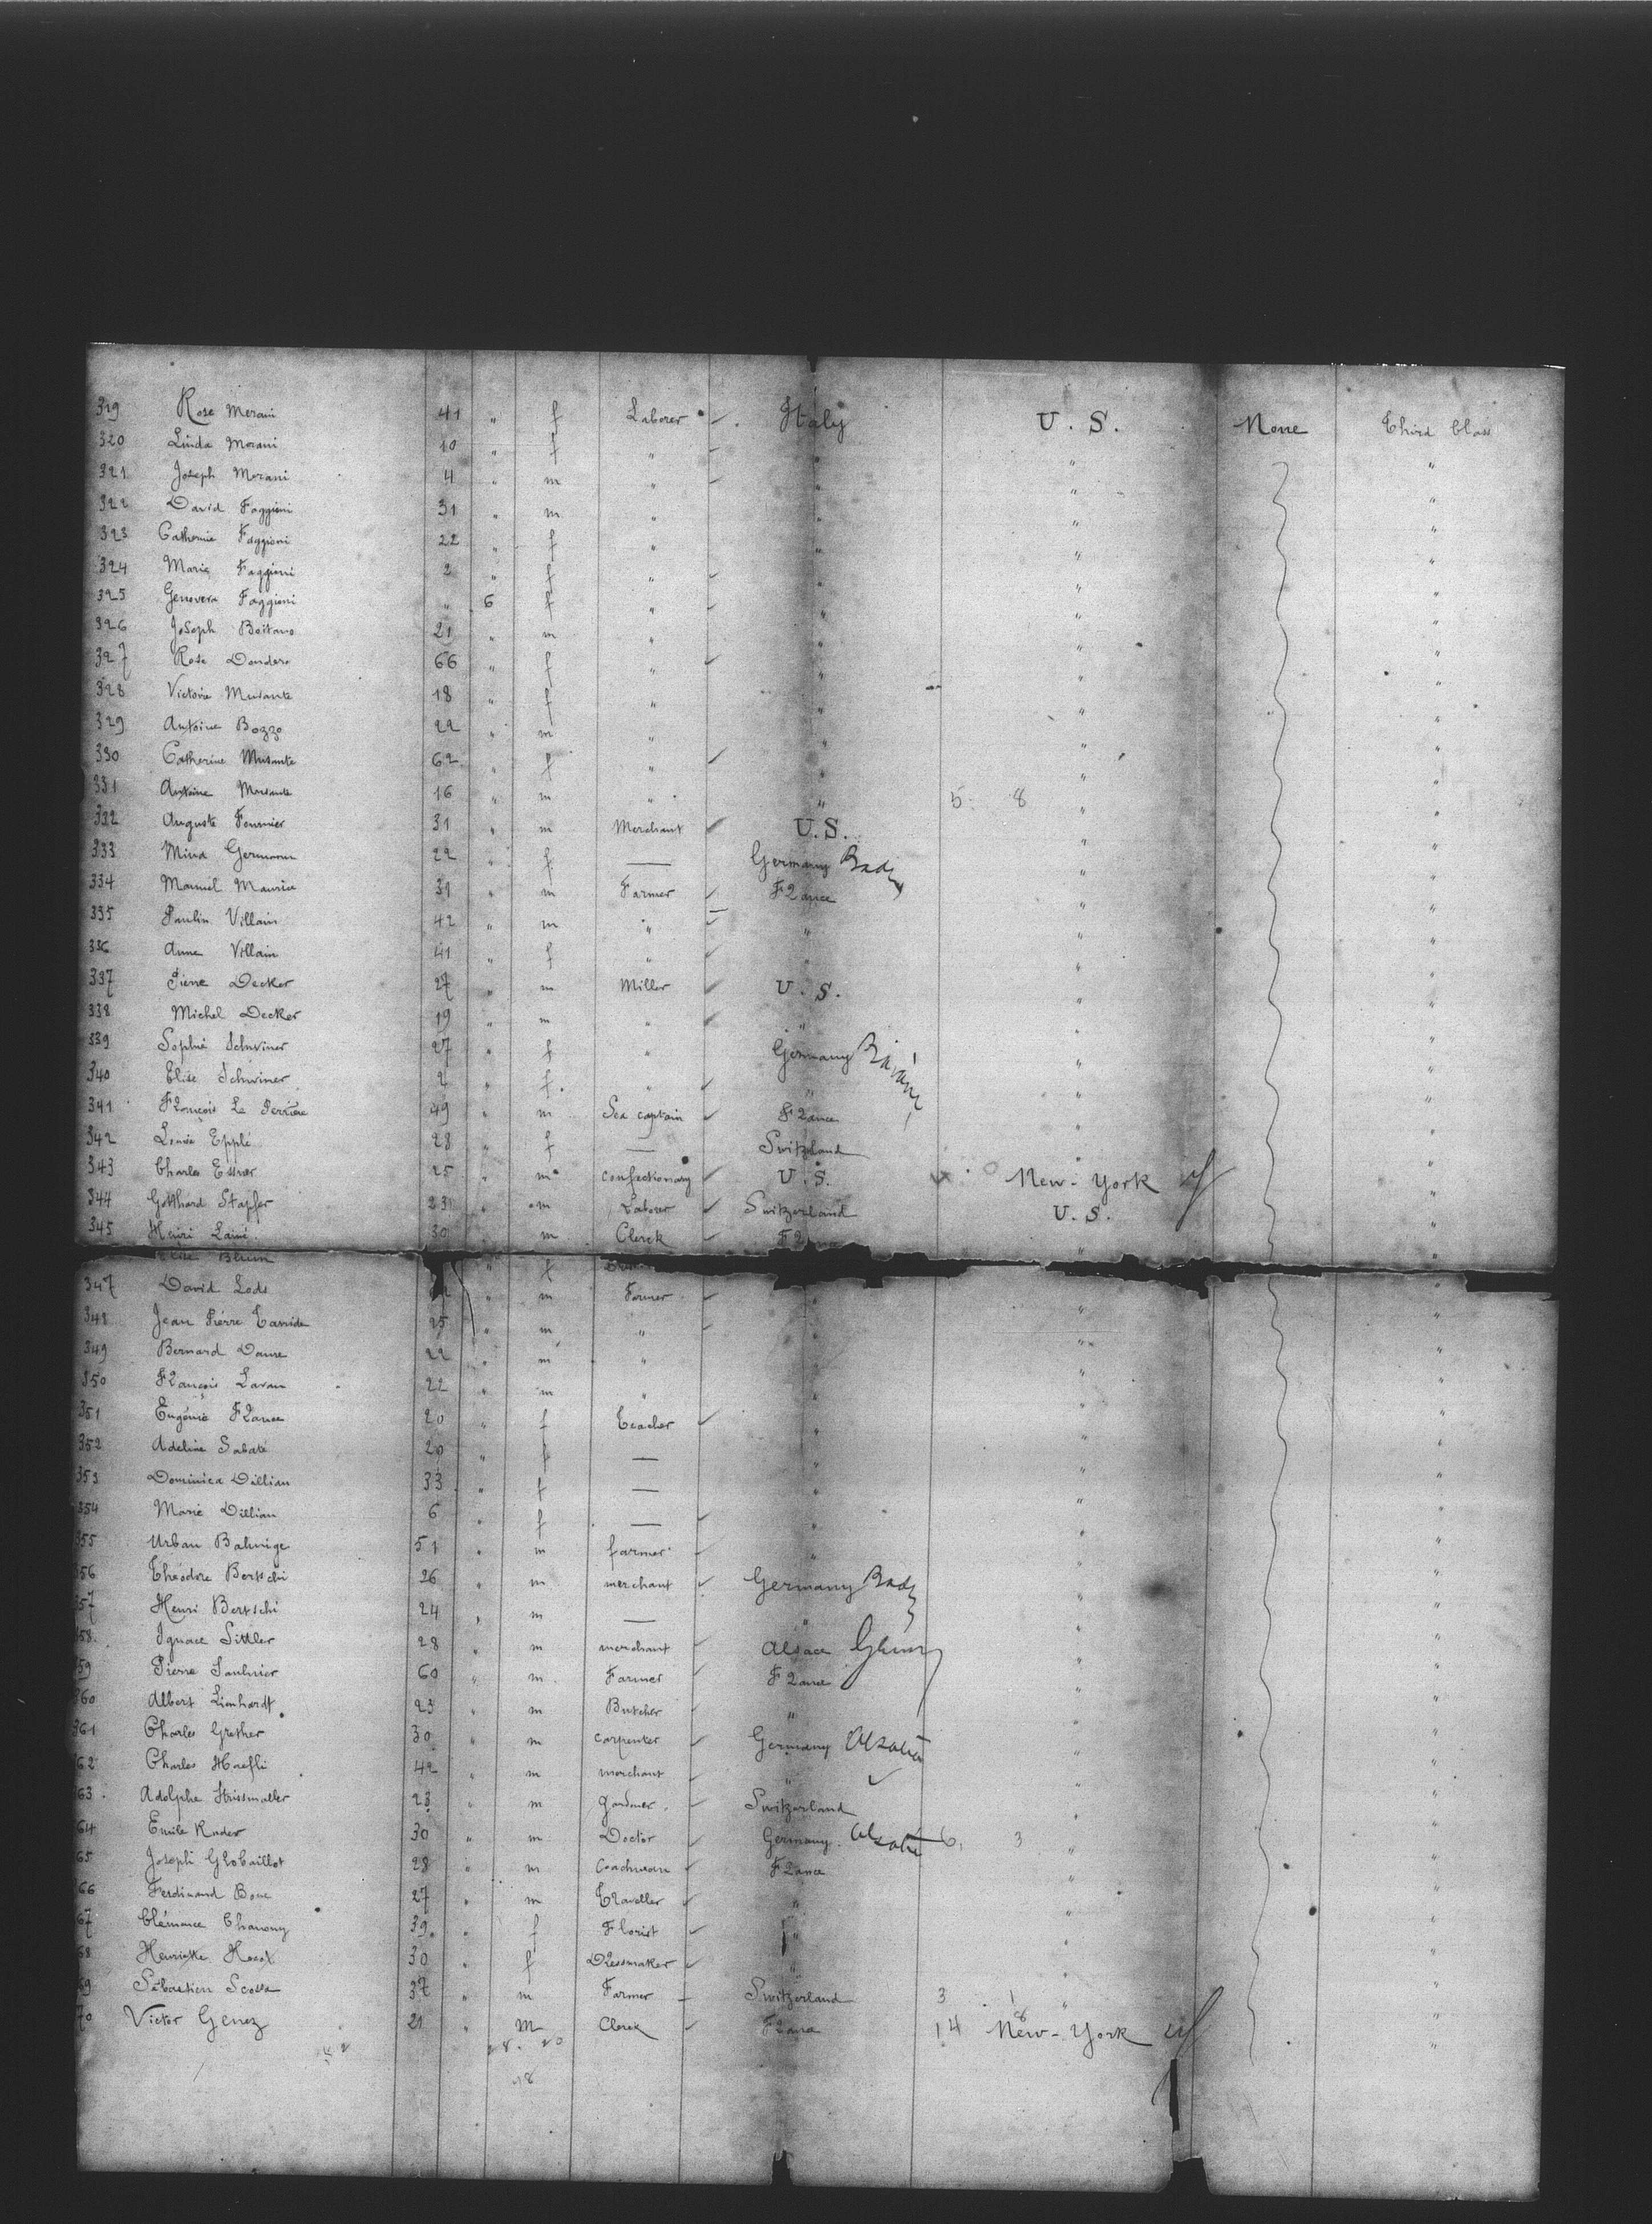 319 Rose Morani 41 " f Laborer Italy U. S. None Third Class
320 Linda Morani 10 " f " " " "
321 Joseph Morani 4 " m " " " "
322 David Faggioni 31 " m " " " "
323 Catherine Faggioni 22 " f " " " "
324 Marie Faggioni 2 " f " " " "
325 Genovera Faggioni " 6 f " " " "
326 Joseph Boitano 21 " m " " " "
327 Rose Dondero 66 " f " " " "
328 Victoria Musante 18 " f " " " "
329 Antoine Bozzo 22 " m " " " "
330 Catherine Musante 62 " f " " " "
331 Antoine Musante 16 " m " " 5 8 " "
332 Auguste Fournier 31 " m Merchant U. S. " "
333 Mina Germann 22 " f — Germany " "
334 Manuel Maurice 31 " m Farmer France " "
335 Paulin Villain 42 " m " " " "
336 Anne Villain 41 " f " " " "
337 Pierre Decker 27 " m Miller U. S. " "
338 Michel Decker 19 " m " " " "
339 Sophie Schwiner 27 " f " Germany " "
340 Elise Schwiner 2 " f " " " "
341 François La Perrière 49 " m Sea captain France " "
342 Louise Epplé 28 " f — Switzerland " "
343 Charles Essner 25 " m confectionary U. S. New-York "
344 Gotthard Stapfer 23 " m Laborer Switzerland U. S. "
345 Henri Lainé 30 m Clerck France " "
Elise Blum " f
347 David Lods " m Farmer " " "
348 Jean Pierre 25 " m " " "
349 Bernard Daure 22 " m " " "
350 François Lavau 22 " m " " " "
351 Eugénie France 20 " f Teacher " " "
352 Adeline Sabaté 20 " f — " " "
353 Dominica Dillian 33 " f — " " "
354 Marie Dillian 6 " f — " " "
355 Urban 51 " m farmer " " "
356 Théodore Bertschi 26 " m merchant Germany " "
57 Henri Bertschi 24 " m — " " "
58 Ignace Sittler 28 " m merchant Alsace " "
59 Pierre Saulnier 60 " m Farmer France " "
360 Albert Lienhardt 23 " m Butcher " " "
361 Charles Grether 30 " m carpenter Germany " "
62 Charles Haefli 42 " m merchant " " "
63 Adolphe 23 " m gardner Switzerland " "
64 Emile Ruder 30 " m Doctor Germany 6 3 " "
65 Joseph Grobaillot 28 " m Coachman France " "
66 Ferdinand Bone 27 " m Traveller " " "
67 Clémence 39 " f Florist " " "
68 Henriette 30 " f Dressmaker " " "
69 Sébastien Scossa 37 " m Farmer Switzerland 3 1 " "
70 Victor Genez 21 " m Clerck France 14 8 New-York "
28. 20
48